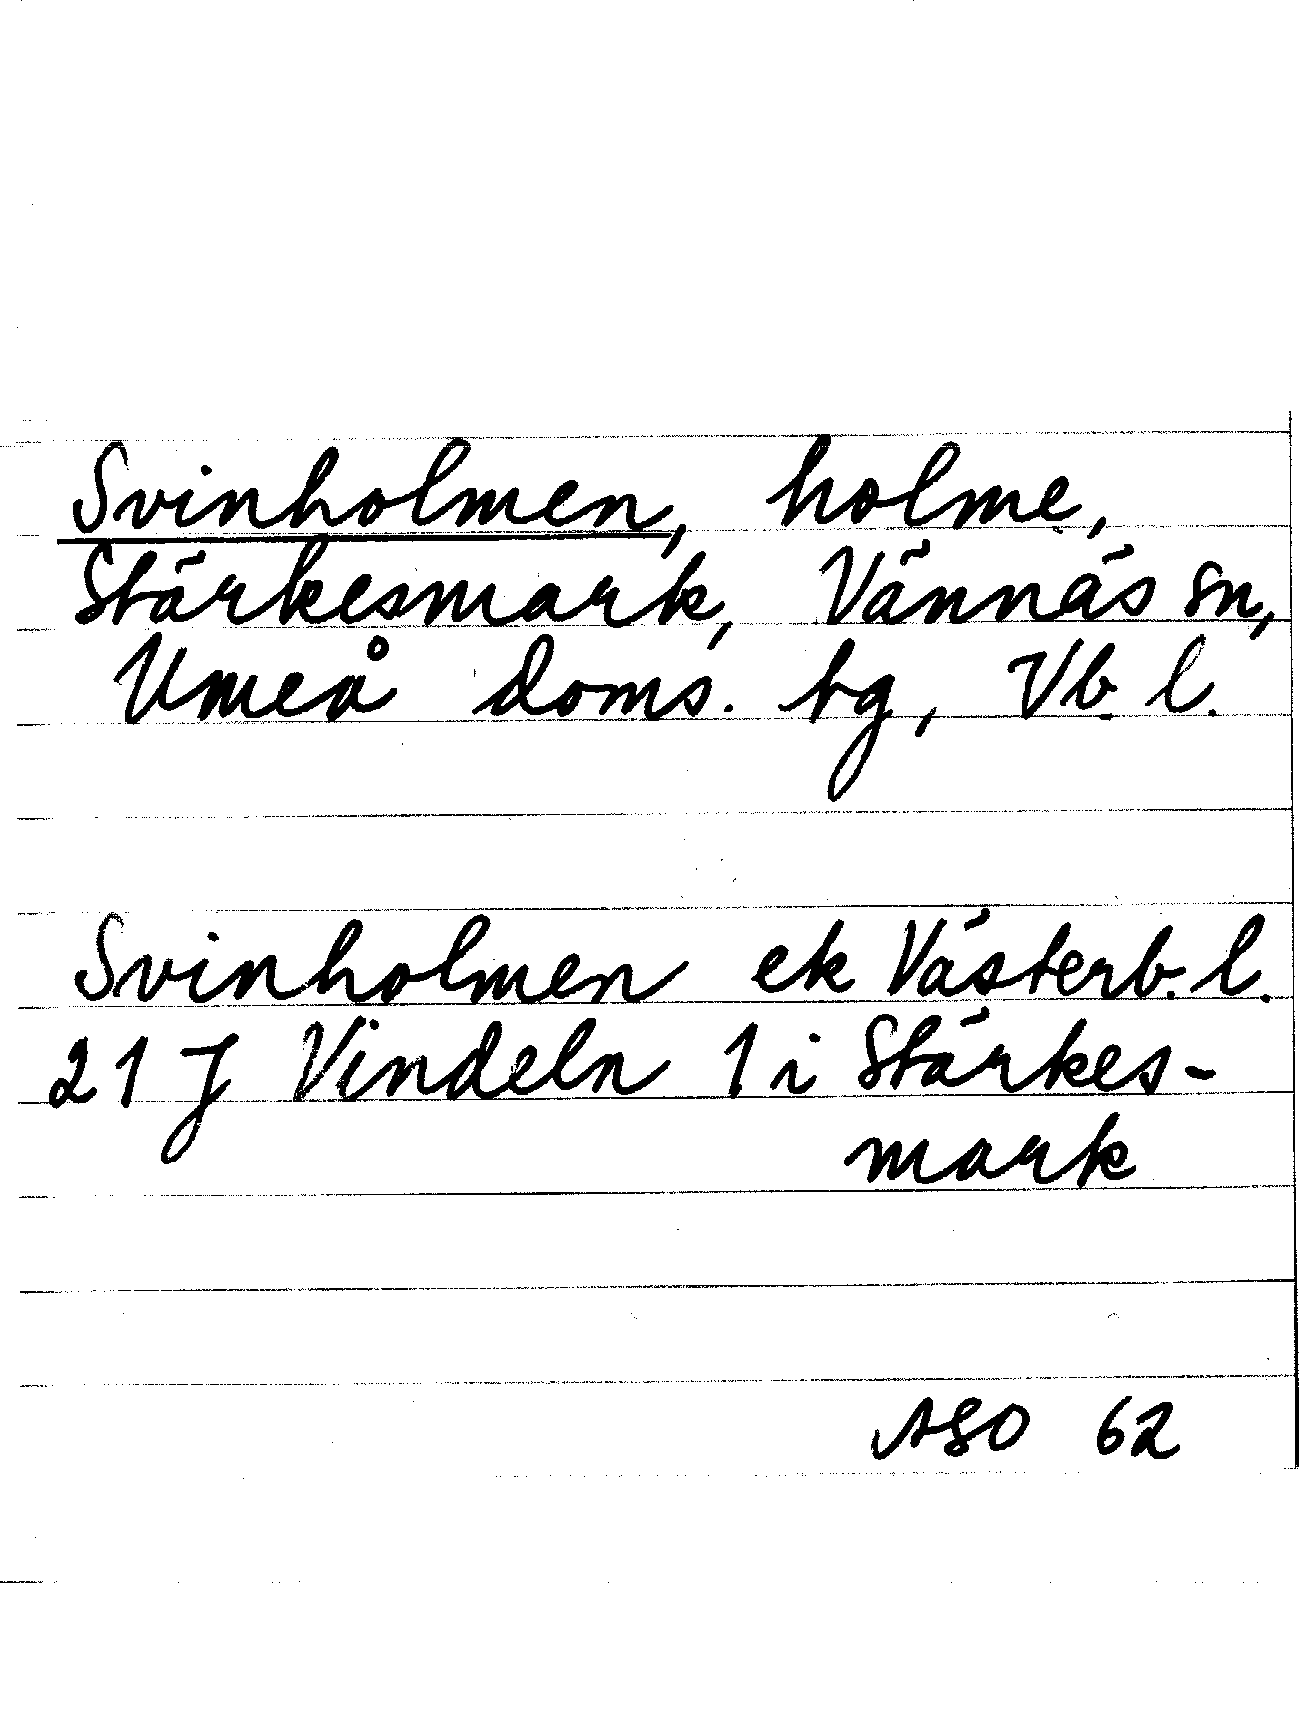 Svinholmen, holme,
Stärkesmark, Vännäs sn,
Umeå doms. tg, Vb l.
Svinholmen ek Västerb. l.
21 J Vindeln 1 i Stärkes-
mark
ASO 62